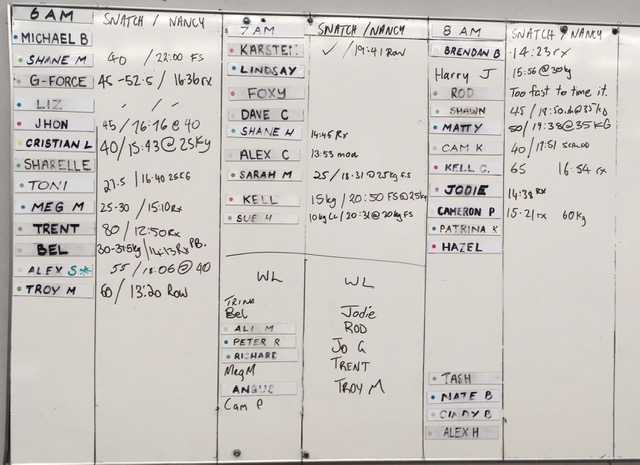 6 AM SNATCH / NANCY
MICHAEL B
SHANE M 40 / 22:00 FS
G-FORCE 45-52.5 / 16:36rx
LIZ - / -
JHON 45 / 16:16 @ 40
CRISTIAN L 40 / 15:43 @ 25Kg
SHARELLE
TONI 27.5 / 16:40 25KG
MEG M 25-30 / 15:10 Rx
TRENT 80 / 12:50 Rx
BEL 30-37.5kg / 14:13 Rx PB.
ALEX S* 55 / 18:06 @ 40
TROY M 60 / 13:20 Row
7 AM SNATCH / NANCY
KARSTEN ✓ / 19:41 Row
LINDSAY
FOXY
DAVE C
SHANE H 14:45 Rx
ALEX C 13:53 mod
SARAH M 25 / 18:31 @ 25kg FS
KELL 15kg / 20:50 FS @ 25kg
SUE H 10kg / 20:31 @ 20kg FS
WL WL
TRINA
Bel Jodie
ALI M ROD
PETER R Jo G
RICHARD TRENT
Meg M TROY M
ANGUS
Cam P
8 AM SNATCH / NANCY
BRENDAN B 14:23 rx
Harry J 15:56 @ 30kg
ROD Too fast to time it.
SHAWN 45 / @ 35kg
MATTY 50 / 19:38 @ 35 KG
CAM K 40 / 17:51
KELL G. 65 16:54 rx
JODIE 14:38 rx
CAMERON P 15:21 rx 60kg
PATRINA K
HAZEL
TASH
NATE B
CINDY B
ALEX H